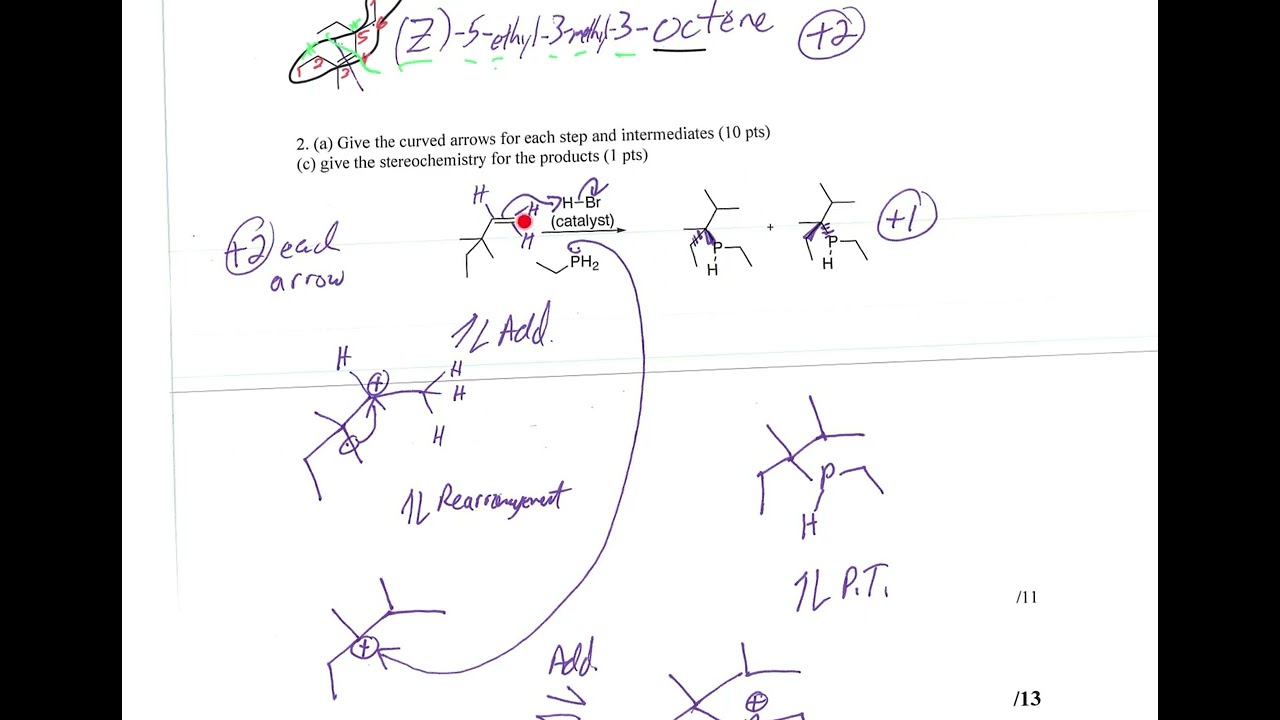 (Z)-5-ethyl-3-methyl-3-octene +2
1 2 3 5 6
2. (a) Give the curved arrows for each step and intermediates (10 pts)
(c) give the stereochemistry for the products (1 pts)
H
H H-Br
(catalyst)
H
PH2
P
H
+
P
H
+1
+2 each
arrow
1L Add.
H
+
H
H
H
1L Rearrangement
P
H
1L P.T.
/11
+
Add.
+
/13